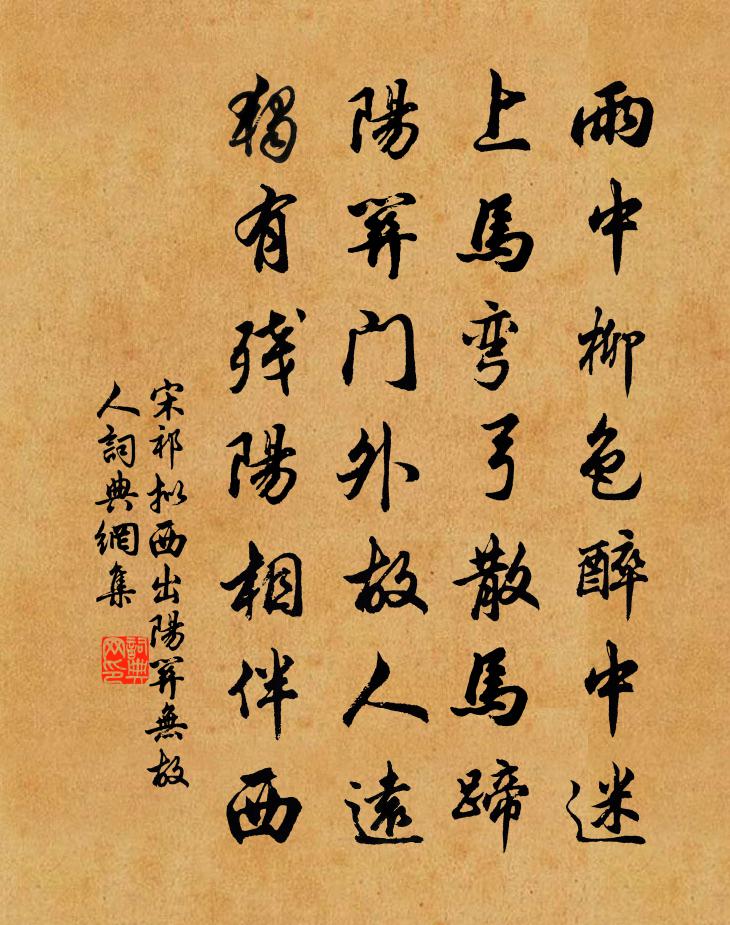 雨中柳色醉中迷
上馬弯弓散馬蹄
陽関门外故人遠
獨有残陽相伴西
宋祁拟西出陽関無故
人詞典網集
詞典网印